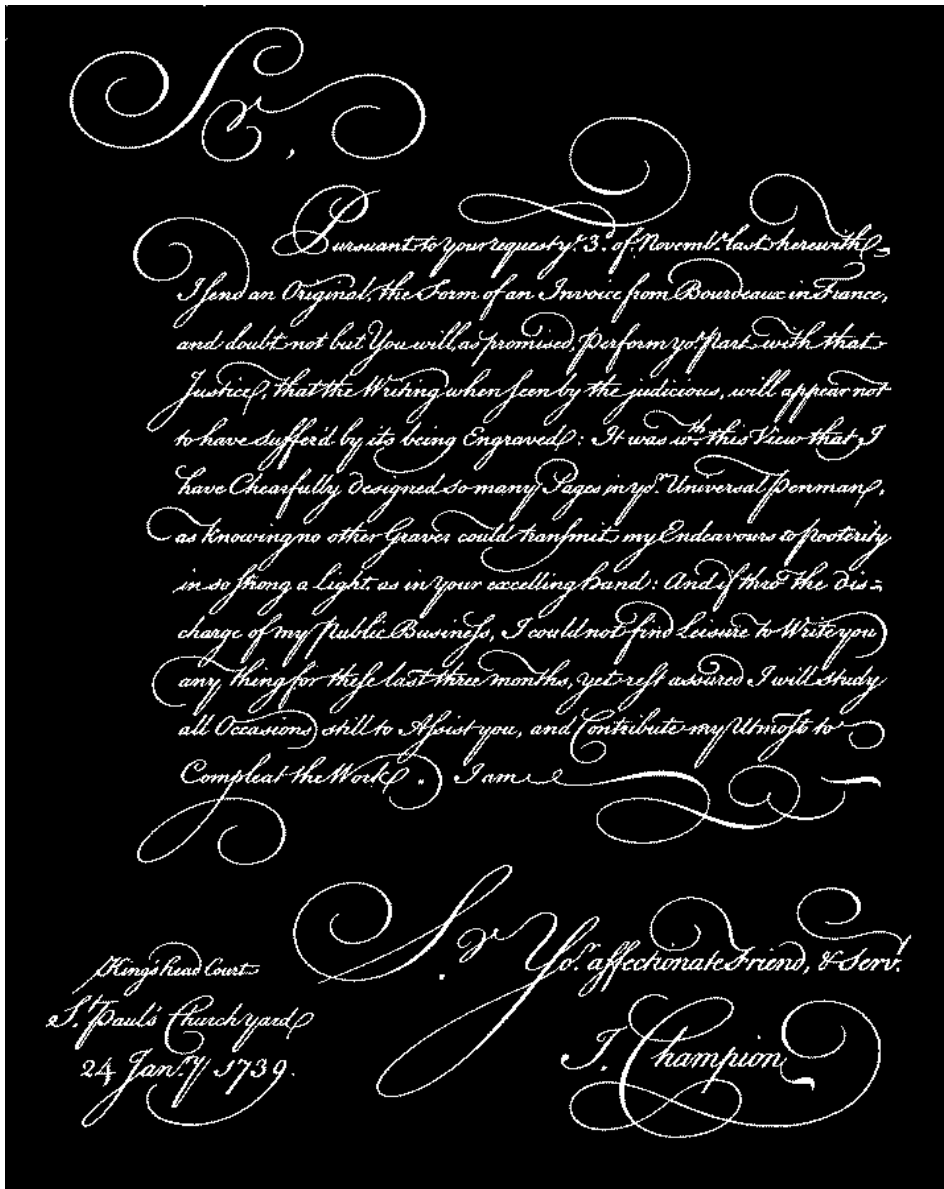 Sr,
Pursuant to your request yе. 3d. of Novembr. last herewith
I send an Original, the Form of an Invoice from Bourdeaux in France,
and doubt not but You will, as promised, perform yor. part with that
Justice, that the Writing when seen by the judicious, will appear not
to have suffer'd by its being Engraved: It was wth. this View that I
have Chearfully designed so many Pages in yor. Universal Penman,
as knowing no other Graver could transmit my Endeavours to posterity
in so strong a light as in your excelling hand: And if thro' the dis=
charge of my public Business, I could not find Leisure to Write you
any thing for these last three months, yet rest assured I will study
all Occasions still to Assist you, and Contribute my Utmost to
Compleat the Work. I am
Sr. Yor. affectionate Friend, & Servt.
King's head Court
St. Paul's Church yard
24 Jany. 1739.
J. Champion